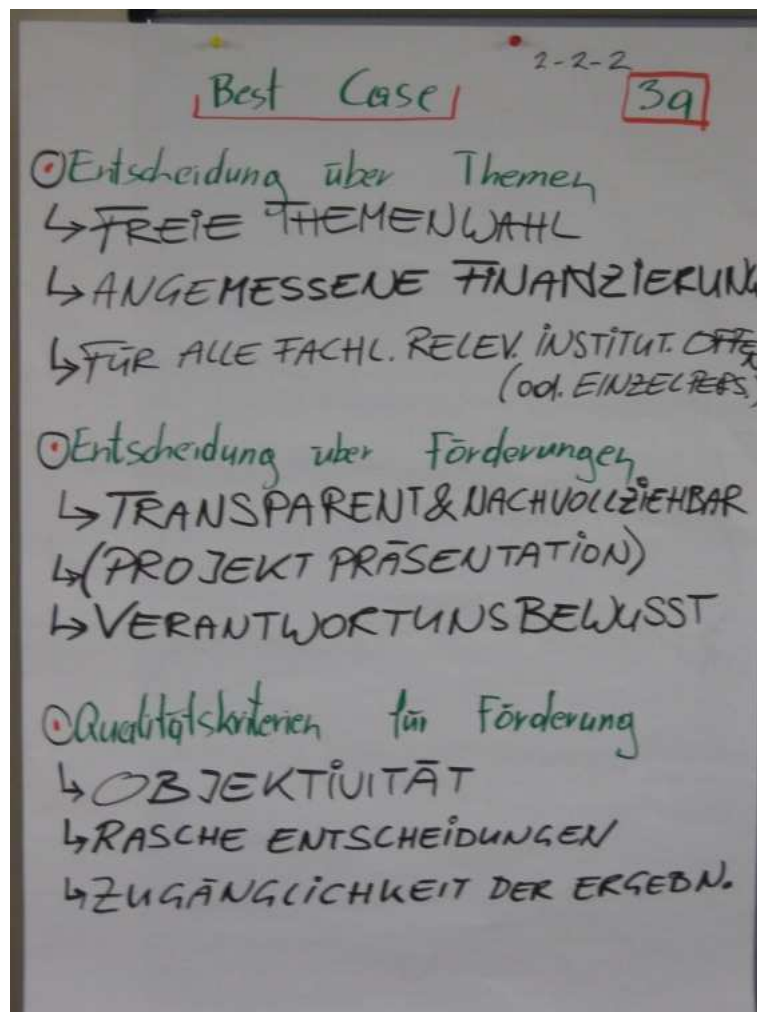 2-2-2
Best Case
3a
Entscheidung über Themen
↳ FREIE THEMENWAHL
↳ ANGEMESSENE FINANZIERUNG
↳ FÜR ALLE FACHL. RELEV. INSTITUT. OFFEN
(od. EINZELPERS.)
Entscheidung über Förderungen
↳ TRANSPARENT & NACHVOLLZIEHBAR
↳ (PROJEKT PRÄSENTATION)
↳ VERANTWORTUNSBEWUSST
Qualitätskriterien für Förderung
↳ OBJEKTIVITÄT
↳ RASCHE ENTSCHEIDUNGEN
↳ ZUGÄNGLICHKEIT DER ERGEBN.